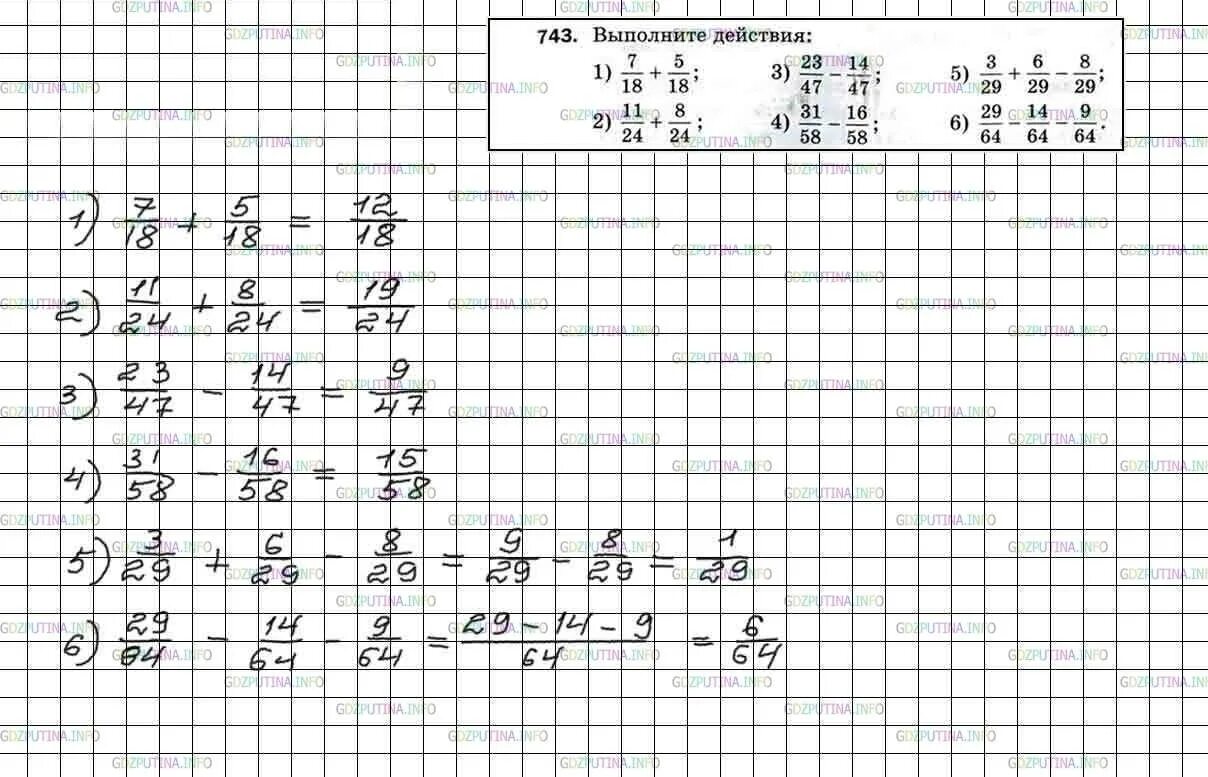 743. Выполните действия:
1) 7/18 + 5/18; 3) 23/47 − 14/47; 5) 3/29 + 6/29 − 8/29;
2) 11/24 + 8/24; 4) 31/58 − 16/58; 6) 29/64 − 14/64 − 9/64.
1) 7/18 + 5/18 = 12/18
2) 11/24 + 8/24 = 19/24
3) 23/47 − 14/47 = 9/47
4) 31/58 − 16/58 = 15/58
5) 3/29 + 6/29 − 8/29 = 9/29 − 8/29 = 1/29
6) 29/64 − 14/64 − 9/64 = 29 − 14 − 9/64 = 6/64
GDZPUTINA.INFO